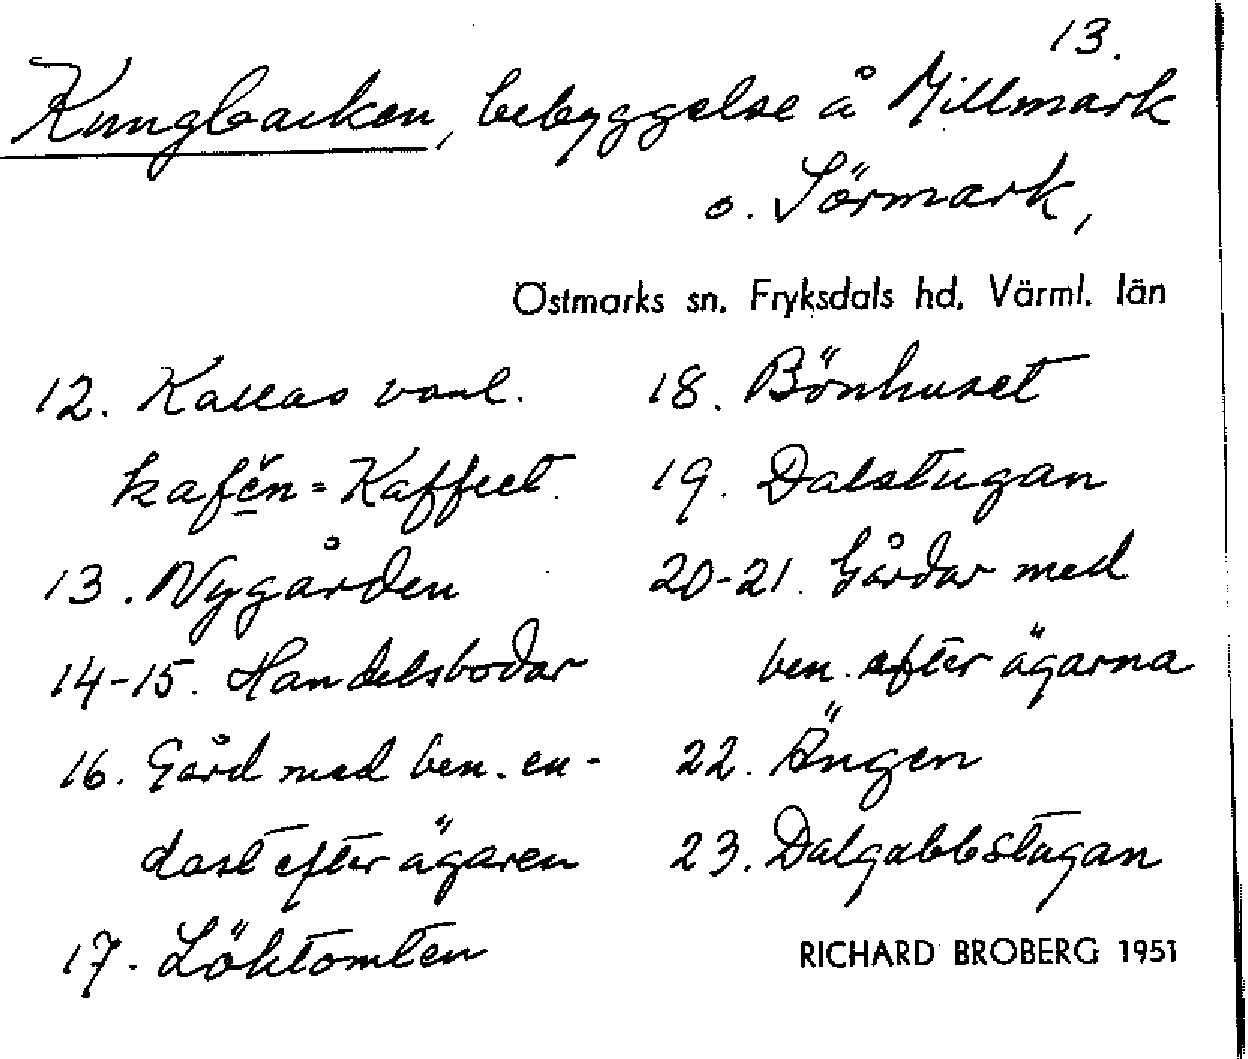 13.
Kungbacken, bebyggelse å Millmark
o. Sörmark,
Östmarks sn. Fryksdals hd. Värml. län
12. Kallas vanl.
kafé̌n = Kaffeet.
13. Nygården
14-15. Handelsbodar
16. Gård med ben. en-
dast efter ägaren
17. Löktomten
18. Bönhuset
19. Dalstugan
20-21. Gårdar med
ben. efter ägarna
22. Ängen
23. Dalgubbstugan
RICHARD BROBERG 1951